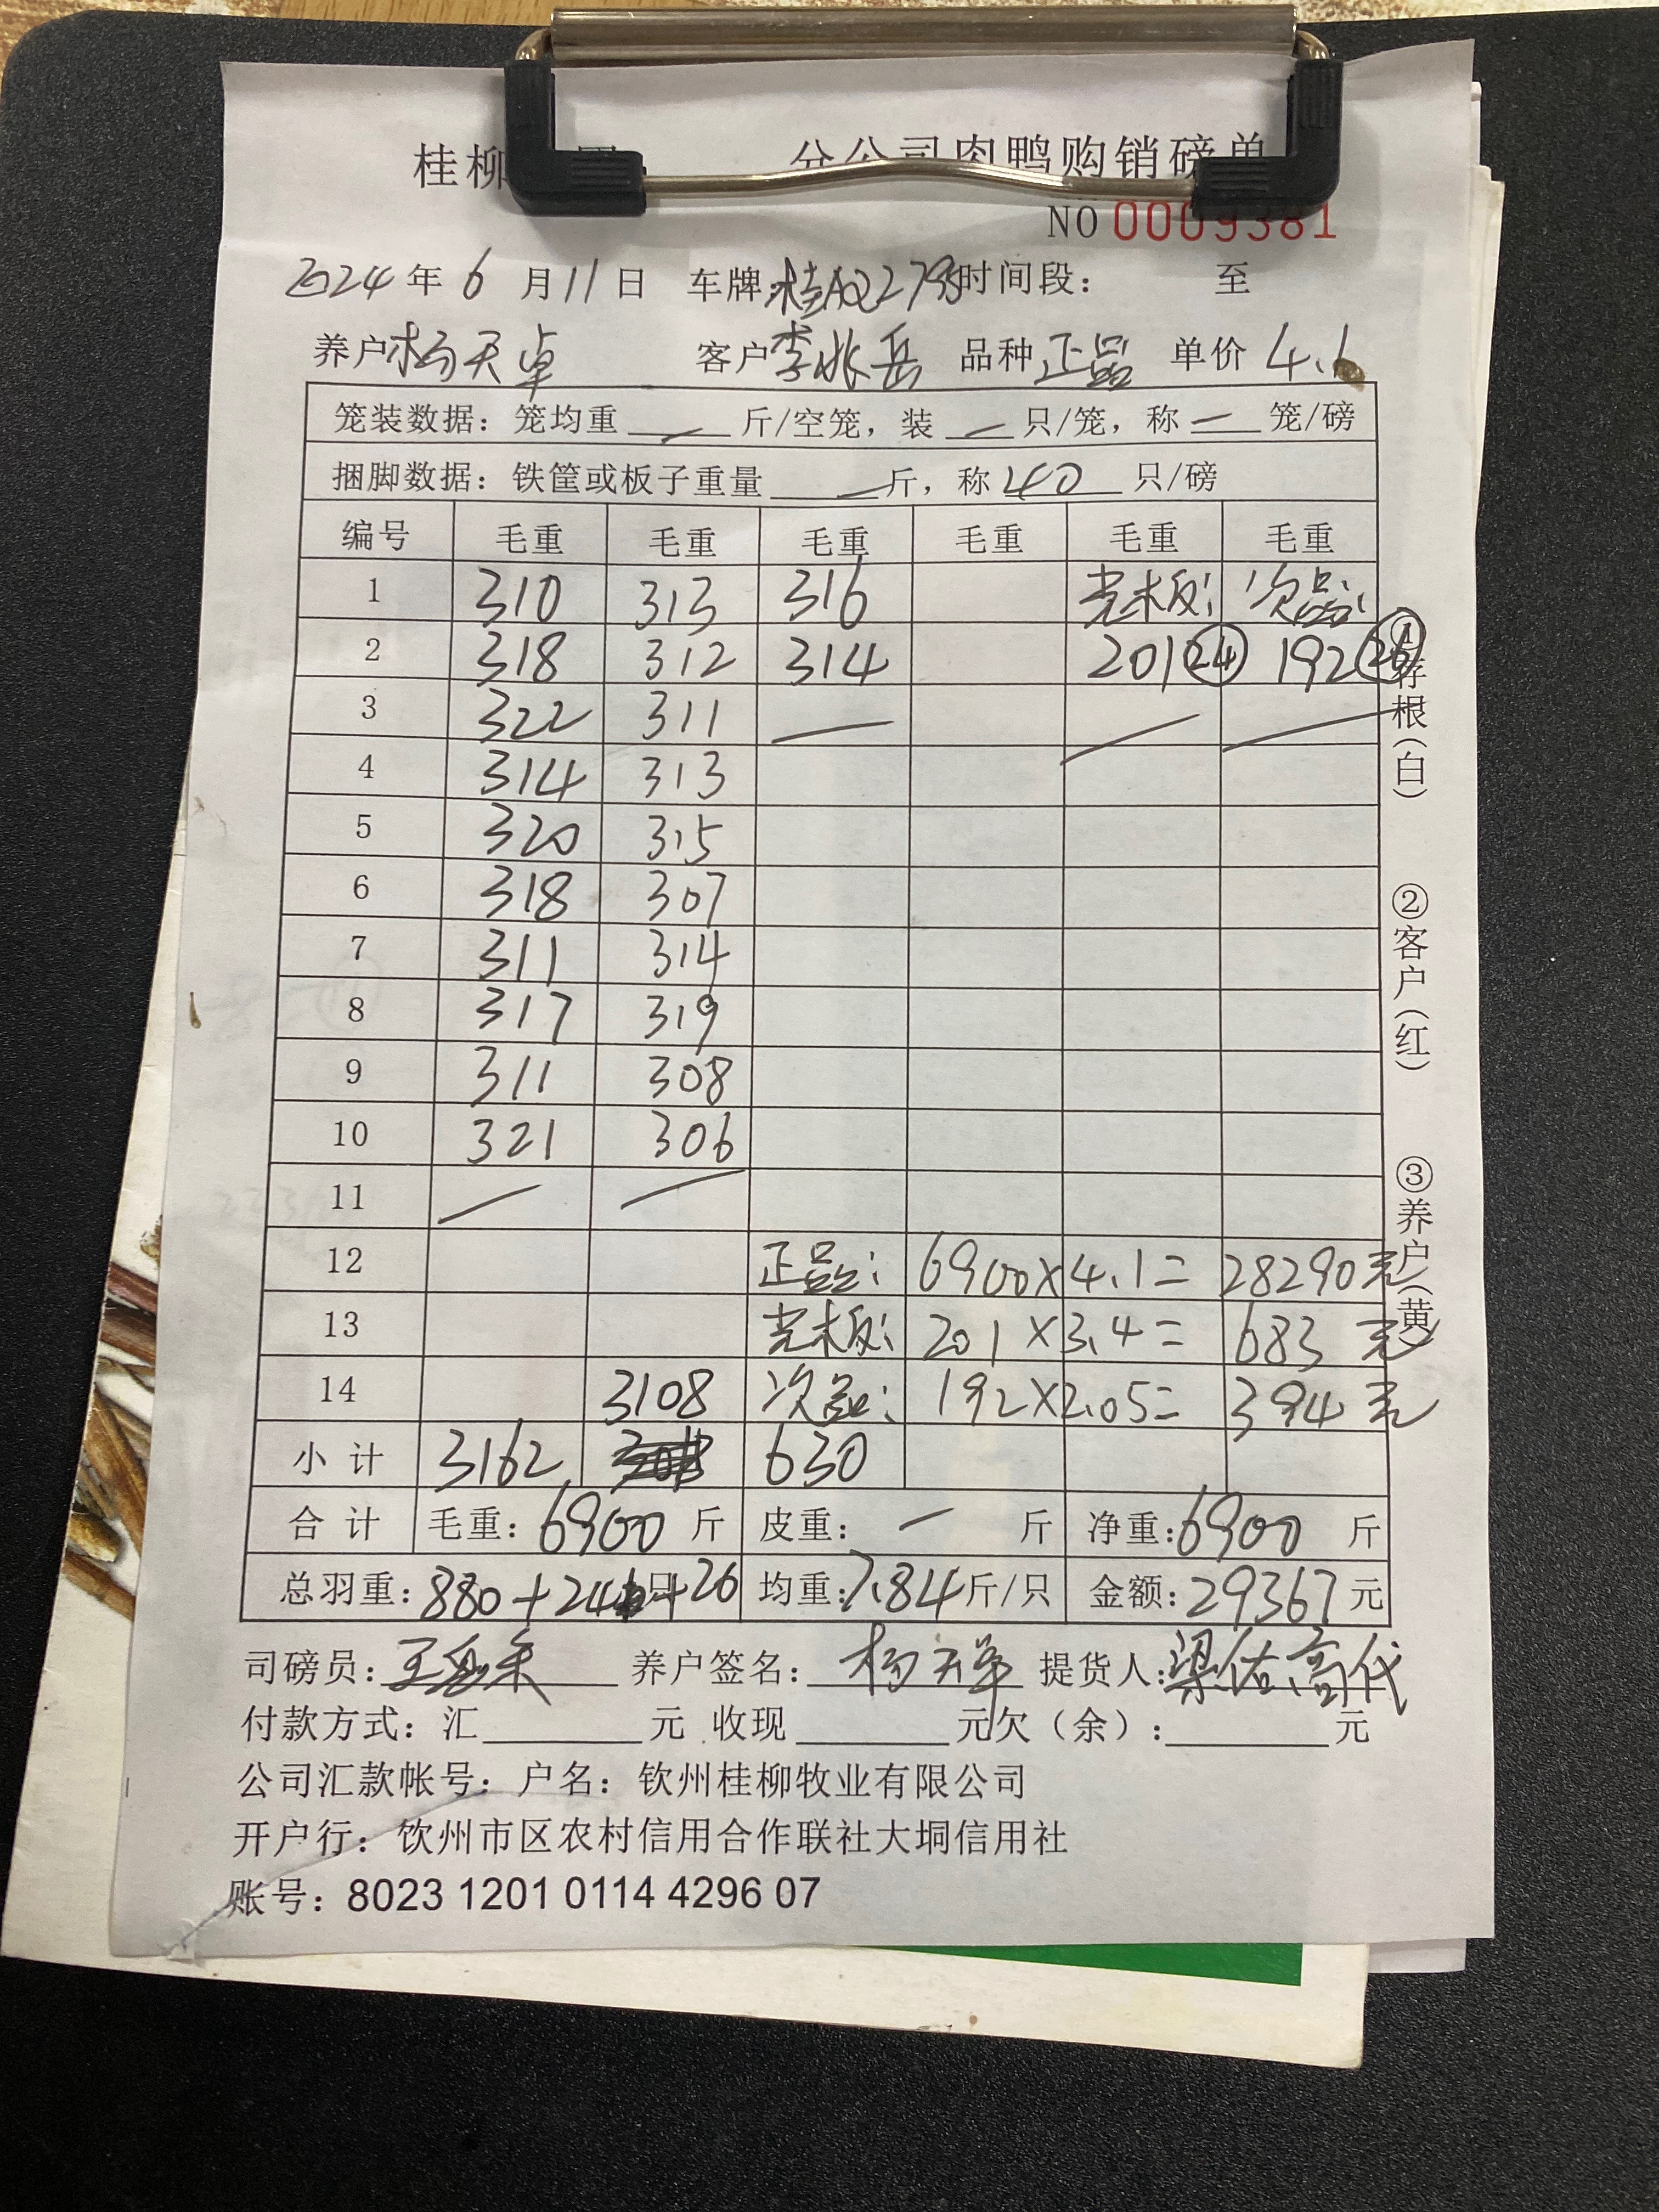 桂柳 分公司肉鸭购销磅单
NO 0009381
2024 年 6 月 11 日 车牌: 桂AQ2795 时间段: 至
养户 杨天卓 客户 李兆岳 品种 正品 单价 4.1
笼装数据: 笼均重 — 斤/空笼, 装 — 只/笼, 称 — 笼/磅
捆脚数据: 铁筐或板子重量 — 斤, 称 40 只/磅
编号 毛重 毛重 毛重 毛重 毛重 毛重
1 310 313 316 光板: 次品:
2 318 312 314 201 24 192 26
3 322 311 — — —
4 314 313
5 320 315
6 318 307
7 311 314
8 317 319
9 311 308
10 321 306
11 — —
12 正品: 6900×4.1= 28290元
13 光板: 201×3.4= 683元
14 3108 次品: 192×2.05= 394元
小计 3162 630
合计 毛重: 6900 斤 皮重: — 斤 净重: 6900 斤
总羽重: 880+24只+26 均重: 7.84 斤/只 金额: 29367 元
司磅员: 养户签名: 提货人:
付款方式: 汇 元 收现 元欠(余): 元
公司汇款帐号: 户名: 钦州桂柳牧业有限公司
开户行: 钦州市区农村信用合作联社大垌信用社
账号: 8023 1201 0114 4296 07
①存根(白)
②客户(红)
③养户(黄)